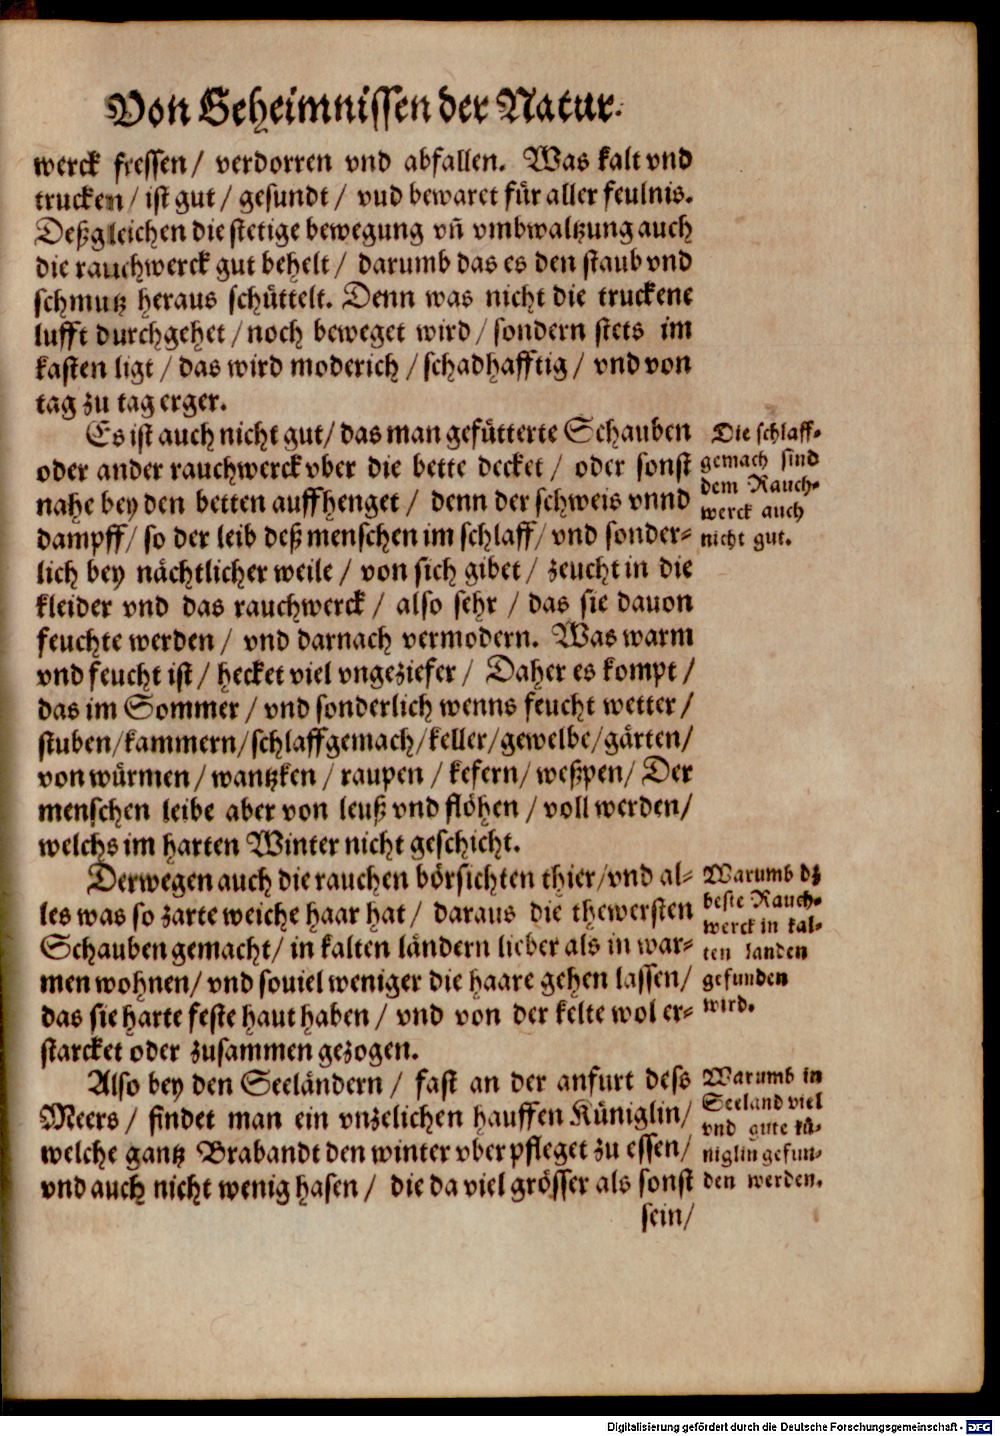 Von Geheimnissen der Natur.
werck fressen/ verdorren vnd abfallen. Was kalt vnd
trucken/ ist gut/ gesundt/ vud bewaret für aller feulnis.
Deßgleichen die stetige bewegung vñ vmbwaltzung auch
die rauchwerck gut behelt/ darumb das es den staub vnd
schmutz heraus schüttelt. Denn was nicht die truckene
lufft durchgehet/ noch beweget wird/ sondern stets im
kasten ligt/ das wird moderich/ schadhafftig/ vnd von
tag zu tag erger.
Es ist auch nicht gut/ das man gefütterte Schauben
oder ander rauchwerck vber die bette decket/ oder sonst
nahe bey den betten auffhenget/ denn der schweis vnnd
dampff/ so der leib deß menschen im schlaff/ vnd sonder-
lich bey nächtlicher weile/ von sich gibet/ zeucht in die
kleider vnd das rauchwerck/ also sehr/ das sie dauon
feuchte werden/ vnd darnach vermodern. Was warm
vnd feucht ist/ hecket viel vngeziefer/ Daher es kompt/
das im Sommer/ vnd sonderlich wenns feucht wetter/
stuben/kammern/schlaffgemach/keller/gewelbe/gärten/
von würmen/ wantzken/ raupen/ kefern/ weßpen/ Der
menschen leibe aber von leuß vnd flöhen/ voll werden/
welchs im harten Winter nicht geschicht.
Die schlaff-
gemach sind
dem Rauch-
werck auch
nicht gut.
Derwegen auch die rauchen börsichten thier/vnd al-
les was so zarte weiche haar hat/ daraus die thewersten
Schauben gemacht/ in kalten ländern lieber als in war-
men wohnen/ vnd souiel weniger die haare gehen lassen/
das sie harte feste haut haben/ vnd von der kelte wol er-
starcket oder zusammen gezogen.
Warumb dz
beste Rauch-
werck in kal-
ten landen
gefunden
wird.
Also bey den Seeländern/ fast an der anfurt dess
Meers/ findet man ein vnzelichen hauffen Küniglin/
welche gantz Brabandt den winter vber pfleget zu essen/
vnd auch nicht wenig hasen/ die da viel grösser als sonst
Warumb in
Seeland viel
vnd gute kü-
niglin gefun-
den werden.
sein/
Digitalisierung gefördert durch die Deutsche Forschungsgemeinschaft - DFG